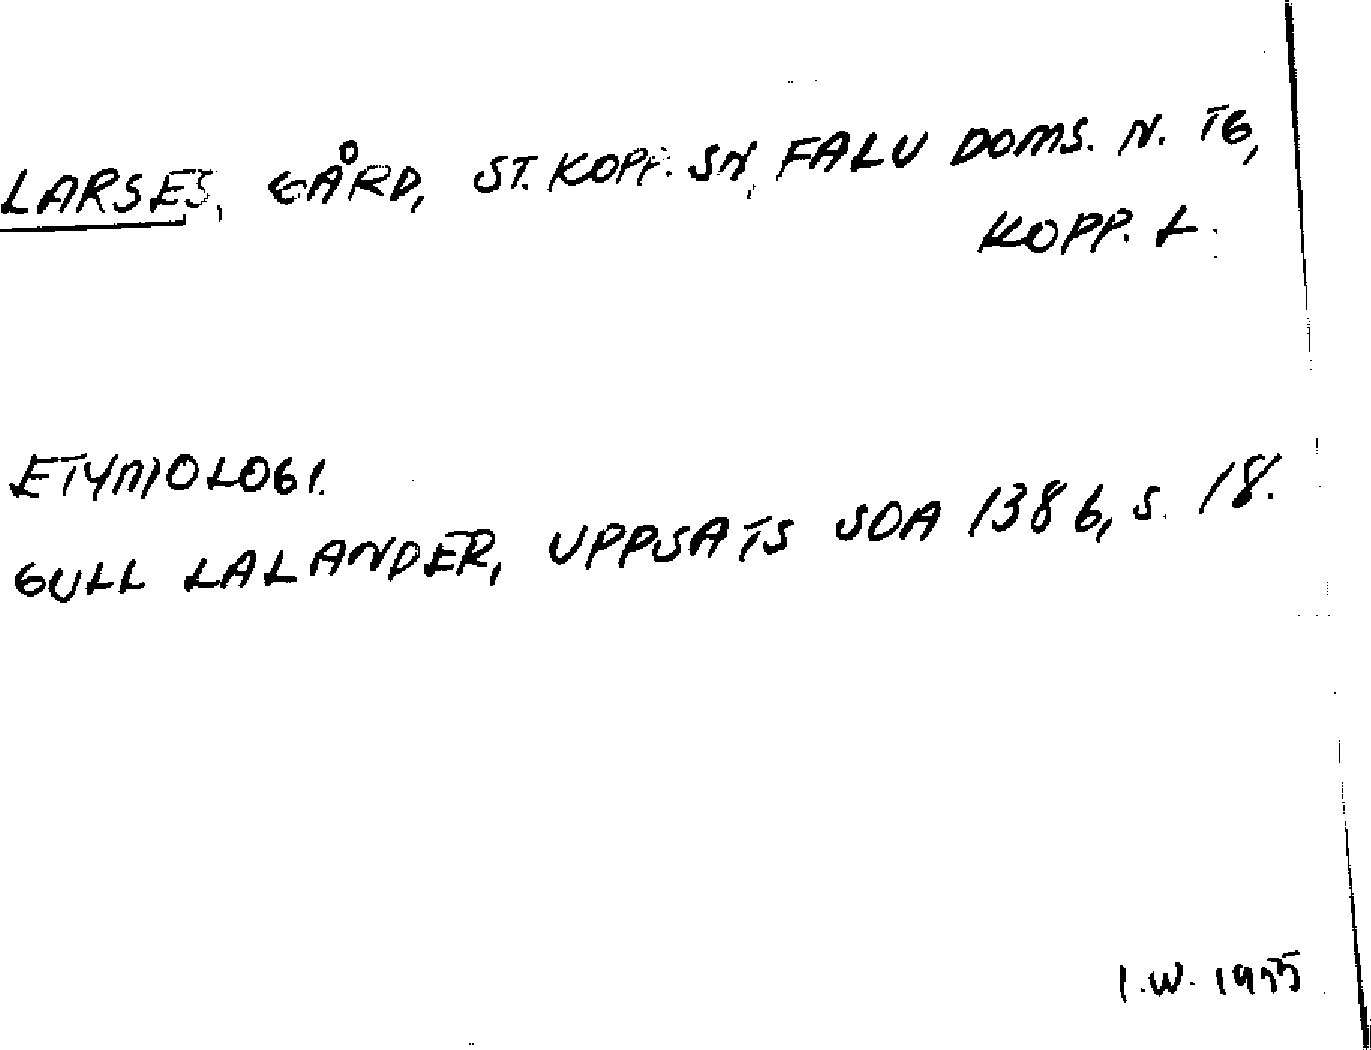 LARSES, GÅRD, ST. KOPP. SN, FALU DOMS. N. TG,
KOPP. L.
ETYMOLOGI.
GULL LALANDER, UPPSATS SOA 1386, S. 18.
I.W. 1955